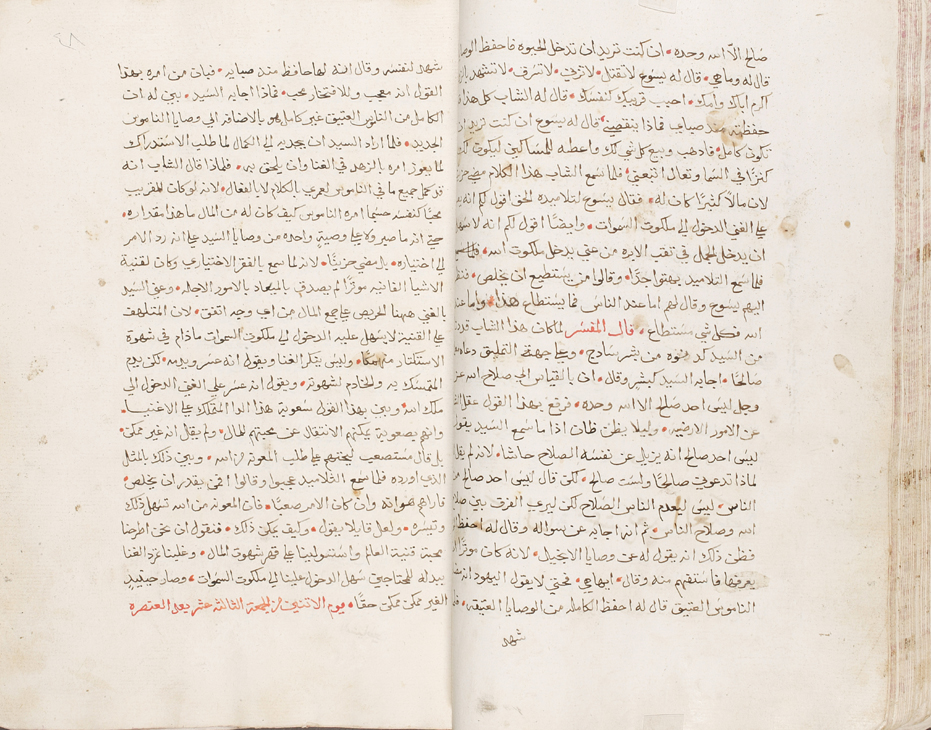 صالح الّا الله وحده • ان كنت تريد ان تدخل الحيوه فاحفظ الوصا
قال له وما هي • قال له يسوع لا تقتل • لا تزني • لا تسرق • لا تشهد بالز
اكرم اباك وامك • احبب قريبك كنفسك • قال له الشاب كل هذا قد
حفظته منذ صباي فماذا ينقصني • قال له يسوع ان كنت تريد ان
تكون كامل • فاذهب وبيع كل شي لك واعطه للمساكين ليكون لك
كنزًا في السما وتعال اتبعني • فلما سمع الشاب هذا الكلام مضي حز
لان مالاً كثيرًا كان له • فقال يسوع لتلاميذه الحق اقول لكم انه يع
علي الغني الدخول الي ملكوت السموات • وايضًا اقول لكم انه لاسهل
ان يدخل الجمل في ثقب الابره من غني يدخل ملكوت الله •
فلما سمع التلاميذ بهتوا جدًا • وقالوا من يستطيع ان يخلص • فنظر
اليهم يسوع وقال لهم اما عند الناس فما يستطاع هذا • واما عند
الله فكل شي مستطاع • قال المفسر لما كان هذا الشاب قد
من السيد كدنوه من بشر سادج • وعلي جهة التمليق دعاه مع
صالحًا • اجابه السيد كبشر وقال • ان بالقياس الي صلاح الله عز
وجل ليس احد صالح الا الله وحده • فرفع بهذا القول عقل الش
عن الامور الارضيه • وليلا يظن ظان اذا ما سمع السيد يقول
ليس احد صالح انه يزيل عن نفسه الصلاح حاشا • لانه لم يقل
لماذا تدعوني صالحًا ولست صالح • لكن قال ليس احد صالح من
الناس • ليس ليعدم الناس الصلاح لكن ليرى الفرق بين صلاح
الله وصلاح الناس • ثم انه اجابه عن سواله وقال له احفظ الو
فظن ذلك انه يقول له عن وصايا الانجيل • لانه كان موثرًا ان
يعرفها فاستفهم منه وقال • ايما هي • فحتي لا يقول اليهود انت
الناموس العتيق قال له احفظ الكامله من الوصايا العتيقه •
شهد
شهد لنفسه وقال انه لها حافظ منذ صبايه • فبان من امره بهذا
القول انه معجب وللافتخار محب • فماذا اجابه السيد • بين له ان
الكامل من الناموس العتيق غير كامل هو بالاضافه الي وصايا الناموس
الجديد • فلما اراد السيد ان يجذبه الي الكمال لما طلب الاستدراك
لما يعوز امره بالزهد في الغنا وان يلحق به • فلماذا قال الشاب انه
قد كمل جميع ما في الناموس لعمري بالكلام لا بالفعال • لانه لو كان للقريب
محبًا كنفسه حسبما امره الناموس كيف كان له من المال ما هذا مقداره •
حتي انه ما صبر ولا علي وصية واحده من وصايا السيد علي انه رد الامر
الي اختياره • بل مضي حزينًا • لانه لما سمع بالفقر الاختياري وكان لقنية
الاشيا الفانيه موثرًا لم يصدق بالميعاد بالامور الاجله • وعني السيد
بالغني ههنا الحريص علي جمع المال من اي وجه اتفق • لان المتلهف
علي القنية لا يسهل عليه الدخول الي ملكوت السموات مادام في شهوة
الاستكثار منهمكًا • وليس ينكر الغنا ويقول انه عسر ويذمه • لكن يذم
المتمسك به والخادم لشهوته • وبقوله انه عسر علي الغني الدخول الي
ملك الله • وبين بهذا القول صعوبة هذا الدا المتملك علي الاغنيا •
وانهم بصعوبة يمكنهم الانتقال عن محبتهم للمال • ولم يقل انه غير ممكن •
بل قال مستصعب ليحثهم علي طلب المعونة من الله • وبين ذلك بالمثل
الذي اورده فلما سمع التلاميذ عجبوا وقالوا فمن يقدر ان يخلص •
فاراهم هو انه وان كان الامر صعبًا • فان المعونة من الله تسهل ذلك
وتيسره • ولعل قايلا يقول • وكيف يمكن ذلك • فنقول ان نحن اطرحنا
محبة قنية العالم واستولينا علي قهر شهوة المال • وعلينا نزد الغنا
ببذله للمحتاجين سهل الدخول علينا الي ملكوت السموات • وصار حينيذٍ
الغير ممكن ممكن حقًا • يوم الاثنين من الجمعة الثالثه عشر بعد العنصره